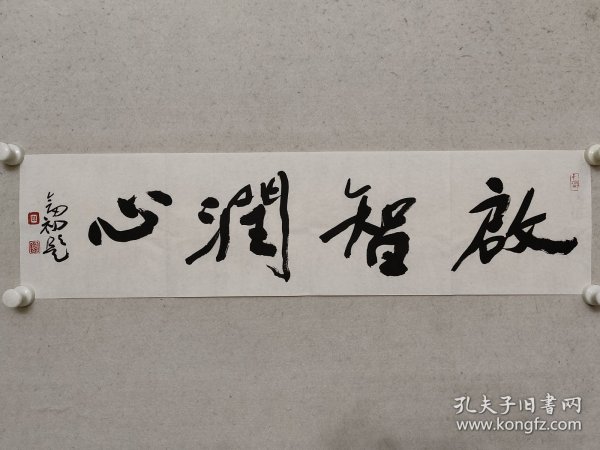 啟智潤心
孔夫子旧書网
www.kongfz.com